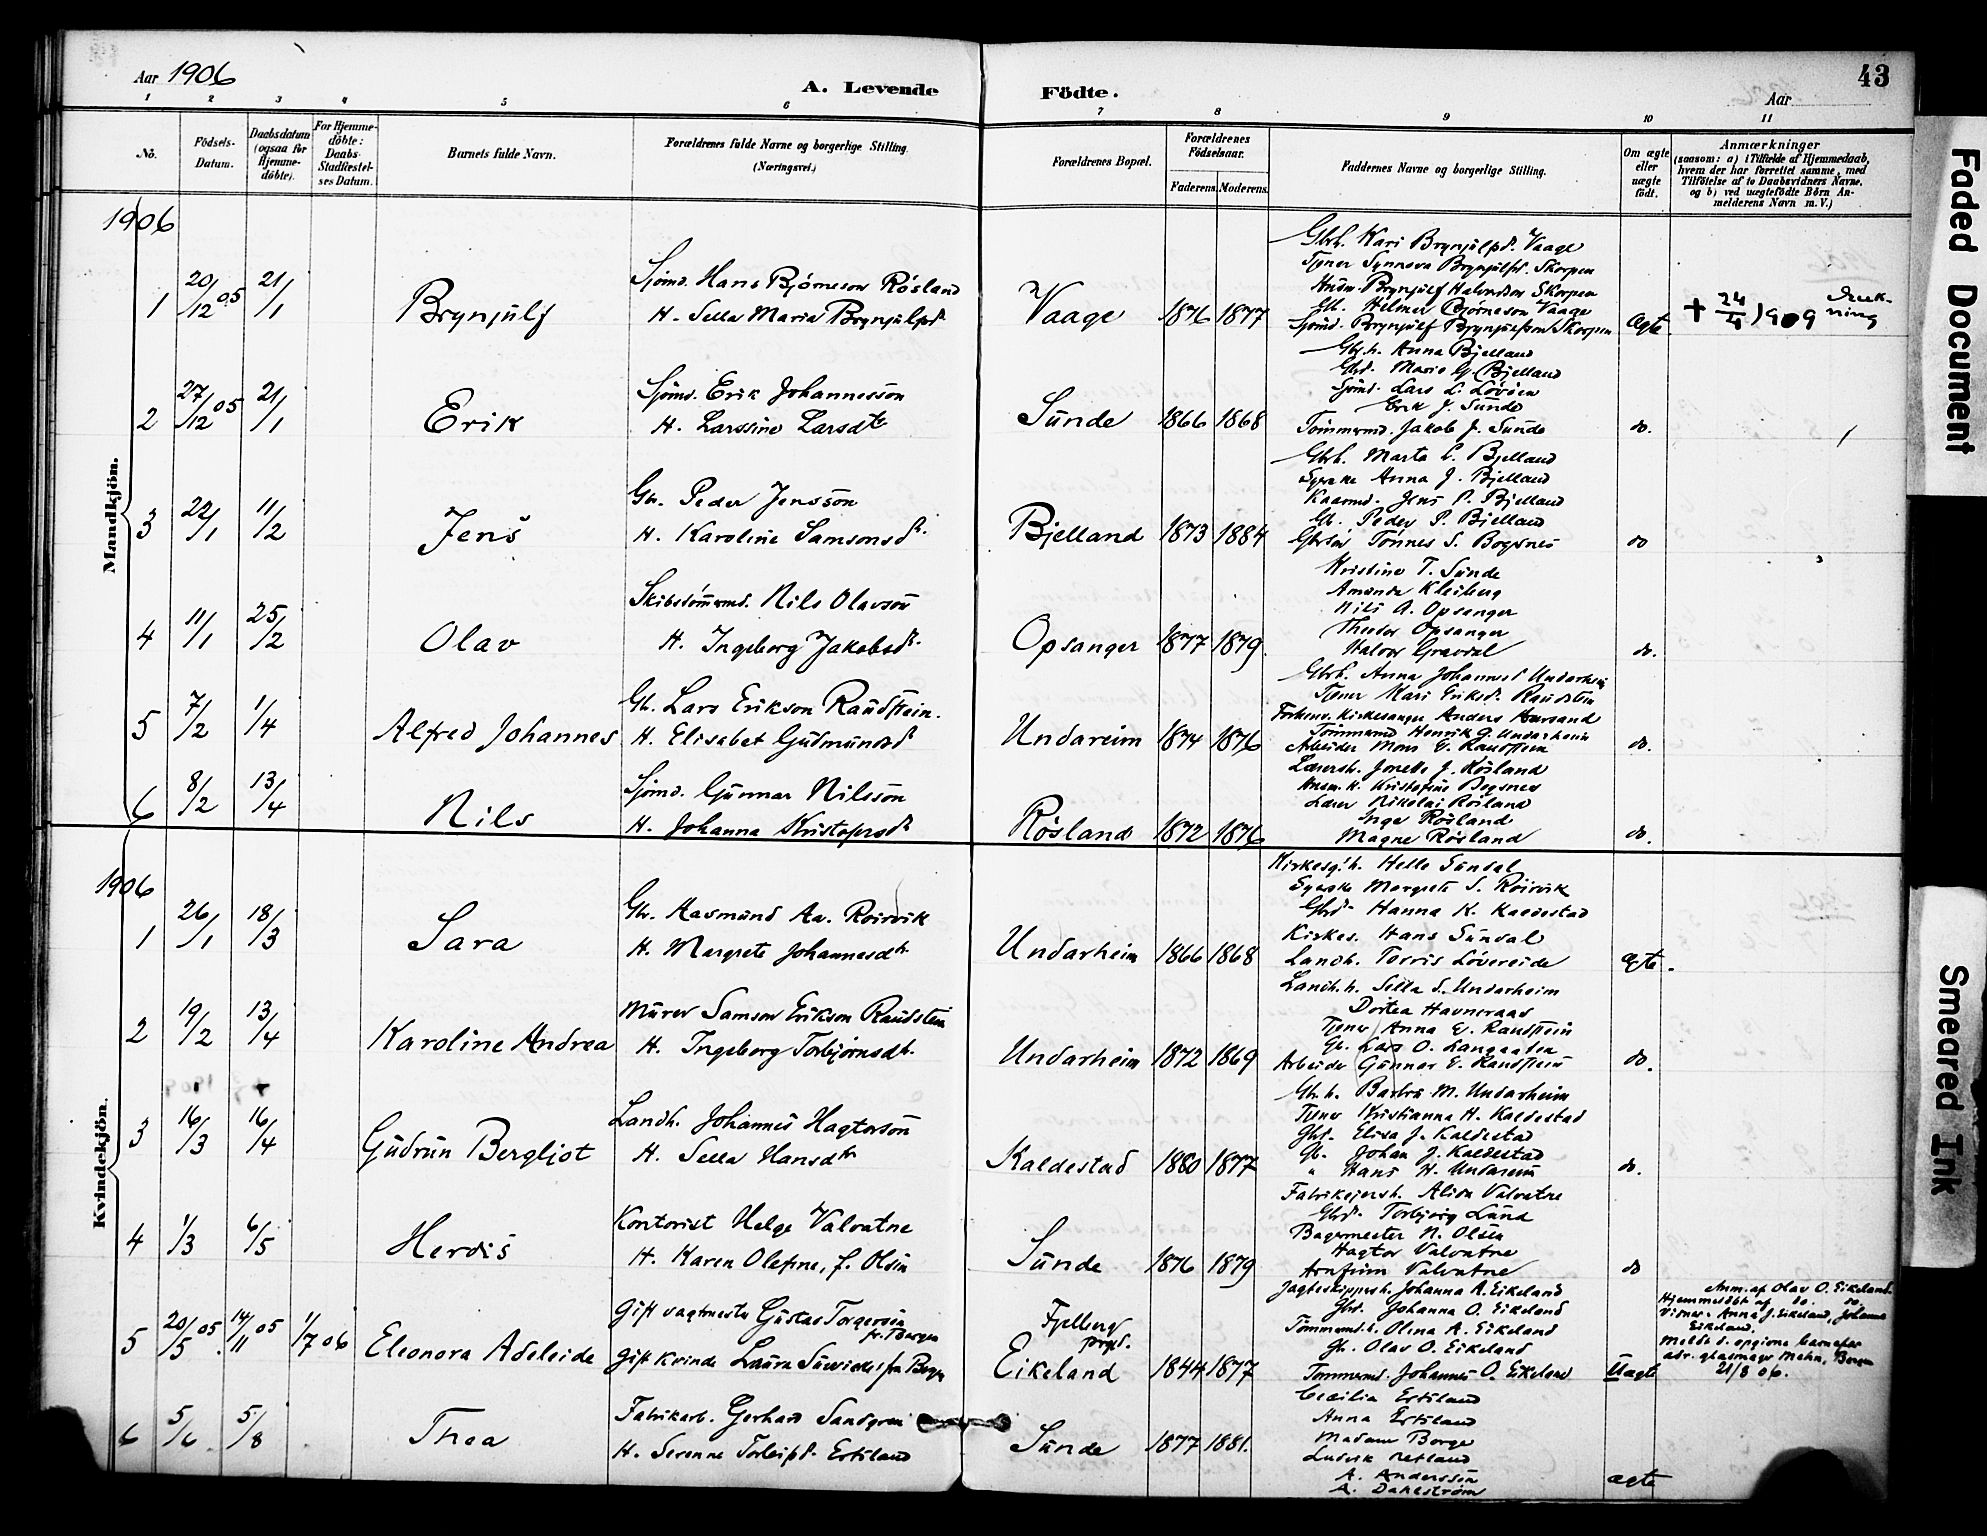 Aar 1906
A. Levende Födte.
43
Aar
1 2 3 4 5 6 7 8 9 10 11
No. Födsels-Datum. Daabsdatum (ogsaa for Hjemme-döbte). For Hjemme-döbte: Daabs-Stadfæstel-ses Datum. Barnets fulde Navn. Forældrenes fulde Navne og borgerlige Stilling. (Næringsvei.) Forældrenes Bopæl. Forældrenes Födselsaar. Faderens. Moderens. Faddernes Navne og borgerlige Stilling. Om ægte eller uægte födt. Anmærkninger (saasom: a) i Tilfælde af Hjemmedaab, hvem der har forrettet samme, med Tilföielse af to Daabsvidners Navne, og b) ved uægtefödte Börn An-melderens Navn m. V.)
Mandkjön.
1906
1 20/12 05 21/1 Brynjulf Sjömd. Hans Bjørneson Røsland
H. Sella Maria Brynjulfsdr. Vaage 1876 1877
Gbrh. Kari Brynjulfsd. Vaage
Tjener Synneva Brynjulfsd. Skorpen
Brynjulf Halvorson Skorpen
Gb. Hilmer Bjørneson Vaage
Sjömd. Brynjulf Brynjulfson Skorpen ægte + 24/4 1909 drukning
2 27/12 05 21/1 Erik Sjömd. Erik Johannesson
H. Larssine Larsdtr Sunde 1866 1868
Gbr.h. Anna Bjelland
Gbrd. Marie G. Bjelland
Sjömd. Lars L. Løvöen
Erik J. Sunde
Tömmermd. Jakob J. Sunde do.
3 22/1 11/2 Jens Gbr. Peder Jensson
H. Karoline Samsonsdr. Bjelland 1873 1884
Gbrh. Marta L. Bjelland
Syerske Anna J. Bjelland
Kaarmd. Jens P. Bjelland
Gb. Peder P. Bjelland
Gbrsön Tönnes S. Bogsnes do
4 11/1 25/2 Olav Skibstömrmd. Nils Olavson
H. Ingeborg Jakobsdr. Opsanger 1877 1879
Kristine T. Sunde
Amanda Kleiberg
Nils A. Opsanger
Theodor Opsanger
Halvor Gravdal do.
5 7/2 1/4 Alfred Johannes Gb. Lars Erikson Raudstein.
H. Elisabet Gudmundsd Undareim 1874 1876
Gbrh. Anna Johannesd Undarheim
Tjener Kari Eriksd. Raudstein
Forhenv. Kirkesanger Anders Aarsand
Tömmermd Henrik G. Undarheim
Arbeider Mons E. Raudstein do.
6 8/2 13/4 Nils Sjömd. Gunnar Nilsson
H. Johanna Kristofersdr Røsland 1872 1876
Lærersh. Jonette J. Røsland
H. Kristofine Bogsnes
Lærer Nikolai Røsland
Inga Røsland
Magne Røsland do.
Kvindekjön.
1906
1 26/1 18/3 Sara Gbr. Aasmund Aa. Röirvik
H. Margrete Johannesdtr. Undarheim 1866 1868
Kirkesg.h. Helle Sundal
Syerske Margrete S. Röirvik
Gbrd. Hanna K. Kaldestad
Kirkes. Hans Sundal
Landh. Torris Løvereide ægte.
2 19/2 13/4 Karoline Andrea Murer Samson Erikson Raudstein
H. Ingeborg Torbjørnsdtr. Undarheim 1872 1869
Landh.h. Sella S. Undarheim
Dortea Havneraas
Tjener Anna E. Raudstein
Gb. Lars O. Langaaten
Arbeider Gunnar E. Raudstein do.
3 16/3 16/4 Gudrun Bergljot Landh. Johannes Hagtorson
H. Sella Hansdtr Kaldestad 1880 1877
Gbr.h. Barbro M. Undarheim
Tjener Kristianna H. Kaldestad
Gbd. Elisa J. Kaldestad
Gb. Johan J. Kaldestad
" Hans H. Undareim do.
4 1/3 6/5 Herdis Kontorist Helge Valvatne
H. Karen Olefine, f. Olsen Sunde 1876 1879
Fabrikejersh. Alida Valvatne
Gbrd. Torbjörg Lund
Bagermester N. Olsen
Hagtor Valvatne
Arnfinn Valvatne do
5 20/5 05 14/11 05 1/7 06 Eleonora Adeleide Gift vagtmester Gustav Torgersen fr. Bergen
Gift Kvinde Laura fra Bergen Fjelberg prgd. Eikeland 1844 1877
Jagteskippersh. Johanna A. Eikeland
Gbd. Johanna O. Eikeland
Tömmermd.h. Olena A. Eikeland
Gb. Olav O. Eikeland
Tömmermd. Johannes O. Eikeland Uægte
Anm. af Olav O. Eikeland.
Hjemmedöbt af do. do.
Vidner Anna J. Eikeland, Johanna
Eikeland.
Meldt d. opgivne barnefar
adr. glasmager Mehn, Bergen
21/8 06.
6 5/6 5/8 Thea Fabrikarb. Gerhard Sandgren
H. Serenne Torleifsd. Ertsland Sunde 1877 1881.
Cecilia Ertsland
Anna Ertsland
Madam Borge
Ludvik Netland
A. Andersson
A. Dahlström ægte
Faded Document
Smeared Ink